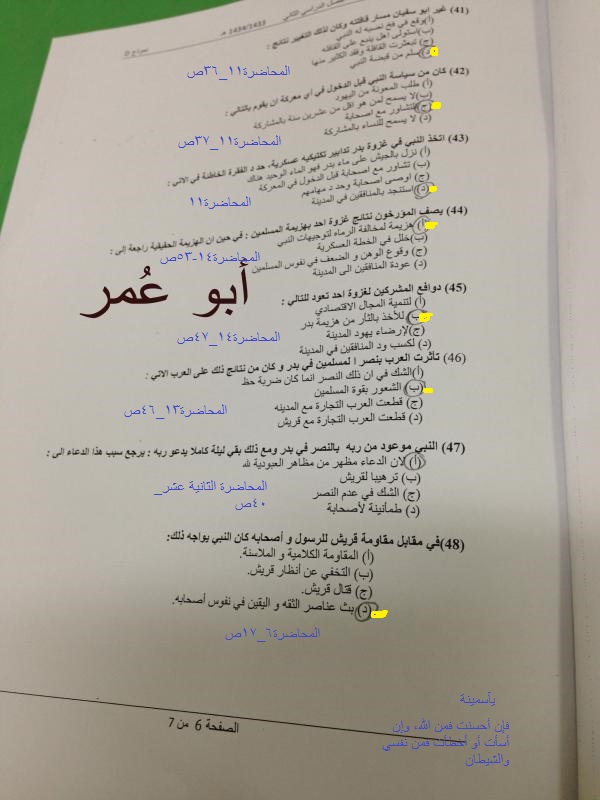 الفصل الدراسي الثاني 1434/1433 هـ
نموذج D
(41) غير ابو سفيان مسار قافلته وكان لذلك التغيير نتائج :
(أ) وقع في فخ نصبه له النبي
(ب) استولى اهل ينبع على القافلة
(ج) تبعثرت القافلة وفقد الكثير منها
(د) سلم من قبضة النبي
المحاضرة١١_٣٦ص
(42) كان من سياسة النبي قبل الدخول في اي معركة ان يقوم بالتالي :
(أ) طلب المعونة من اليهود
(ب) لا يسمح لمن هو اقل من عشرين سنة بالمشاركة
(ج) التشاور مع اصحابة
(د) لا يسمح للنساء بالمشاركة
المحاضرة١١_٣٧ص
(43) اتخذ النبي في غزوة بدر تدابير تكتيكيه عسكرية، حد د الفقرة الخاطئة في الاتي :
(أ) نزل بالجيش على ماء بدر فهو الماء الوحيد هناك
(ب) تشاور مع اصحابة قبل الدخول في المعركة
(ج) اوصى اصحابة وحد د مهامهم
(د) استنجد بالمنافقين في المدينة
المحاضرة١١
(44) يصف المؤرخون نتائج غزوة احد بهزيمة المسلمين : في حين ان الهزيمة الحقيقية راجعة إلى :
(أ) هزيمة لمخالفة الرماه لتوجيهات النبي
(ب) خلل في الخطة العسكرية
(ج) وقوع الوهن و الضعف في نفوس المسلمين
المحاضرة١٤-٥٣ص
(د) عودة المنافقين الى المدينة
أبو عُمر
(45) دوافع المشركين لغزوة احد تعود للتالي :
(أ) لتنمية المجال الاقتصادي
(ب) للأخذ بالثأر من هزيمة بدر
(ج) لإرضاء يهود المدينة
(د) لكسب ود المنافقين في المدينة
المحاضرة١٤_٤٧ص
(46) تأثرت العرب بنصر ا لمسلمين في بدر و كان من نتائج ذلك على العرب الاتي :
(أ) الشك في ان ذلك النصر انما كان ضربة حظ
(ب) الشعور بقوة المسلمين
(ج) قطعت العرب التجارة مع المدينه
(د) قطعت العرب التجارة مع قريش
المحاضرة١٣_٤٦ص
(47) النبي موعود من ربه بالنصر في بدر ومع ذلك بقي ليلة كاملا يدعو ربه : يرجع سبب هذا الدعاء الى :
(أ) لان الدعاء مظهر من مظاهر العبودية لله
(ب) ترهيبا لقريش
(ج) الشك في عدم النصر
(د) طمأنينة لأصحابة
المحاضرة الثانية عشر_
٤٠ص
(48) في مقابل مقاومة قريش للرسول و أصحابه كان النبي يواجه ذلك:
(أ) المقاومة الكلامية و الملاسنة.
(ب) التخفي عن أنظار قريش.
(ج) قتال قريش.
(د) بث عناصر الثقه و اليقين في نفوس أصحابه.
المحاضرة٦_١٧ص
الصفحة 6 من 7
يآسمينة
فإن أحسنت فمن الله، وإن
أسأت أو أخطأت فمن نفسي
والشيطان